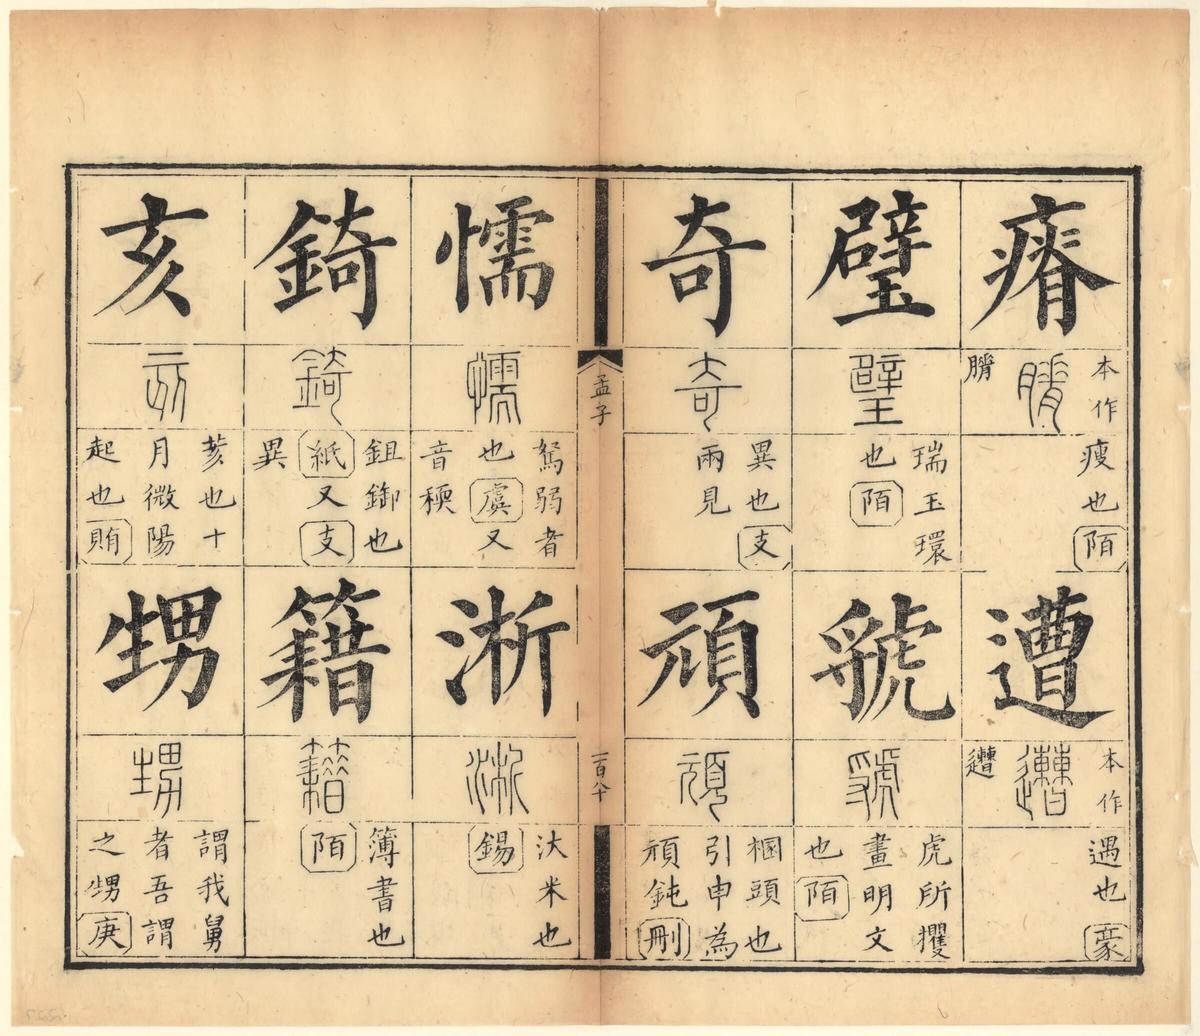 瘠
本作
膌
瘦也陌
遭
本作
遇也豪
璧
瑞玉環
也陌
虢
虎所攫
畫明文
也陌
奇
異也支
兩見
頑
梱頭也
引申為
頑鈍刪
孟子
一百八十
懦
駑弱者
也虞又
音稬
淅
汏米也
錫
錡
鉏鋙也
紙又支
異
籍
簿書也
陌
亥
荄也十
月微陽
起也賄
甥
謂我舅
者吾謂
之甥庚